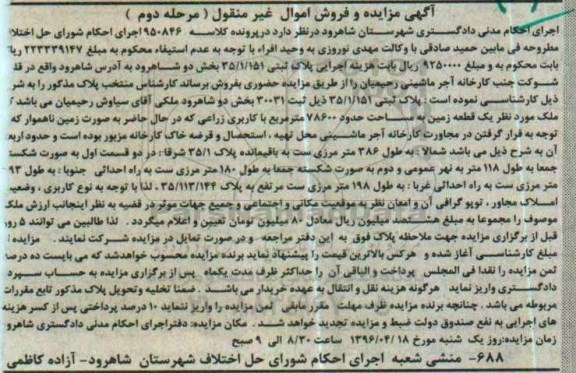 آگهی مزایده و فروش اموال غیر منقول ( مرحله دوم )
اجرای احکام مدنی دادگستری شهرستان شاهرود درنظر دارد درپرونده کلاسه ۹۵۰۸۴۶ اجرای احکام شورای حل اختلاف
مطروحه فی مابین حمید صادقی با وکالت مهدی نوروزی به وحید افراء با توجه به عدم استیفاء محکوم به مبلغ ۲۲۳۲۳۹۱۴۷ ریال
بابت محکوم به و مبلغ ۹۲۵۰۰۰۰ ریال بابت هزینه اجرایی پلاک ثبتی ۳۵/۱/۱۵۱ بخش دو شاهرود به آدرس شاهرود واقع در
شوکت جنب کارخانه آجر ماشینی رحیمیان را از طریق مزایده حضوری بفروش برساند کارشناس منتخب پلاک مذکور را به شر
ذیل کارشناسی نموده است : پلاک ثبتی ۳۵/۱/۱۵۱ ذیل ثبت ۳۰۰۳۱ بخش دو شاهرود ملکی آقای سیاوش رحیمیان می باشد
ملک مورد نظر یک قطعه زمین به مساحت حدود ۷۸۶۰۰ مترمربع با کاربری زراعی که در حال حاضر به صورت زمین ناهموار که
توجه به قرار گرفتن در مجاورت کارخانه آجر ماشینی محل تهیه ، استحصال و قرضه خاک کارخانه مزبور بوده است و حدود اربعه
آن به شرح ذیل می باشد شمالا : به طول ۳۸۶ متر مرزی ست به باقیمانده پلاک ۳۵/۱ شرقا : در دو قسمت اول به صورت شکسته
جمعا به طول ۱۱۸ متر به نهر عمومی و دوم به صورت شکسته جمعا به طول ۱۸۰ متر مرزی ست به راه احداثی جنوبا : به طول ۹۳
متر مرزی ست به راه احداثی غربا : به طول ۱۹۸ متر مرزی ست مرتفع به پلاک ۳۵/۱۱۳/۱۴۴ . لذا با توجه به نوع کاربری ، وضعیت
املاک مجاور ، توپو گرافی آن و امعان نظر به موقعیت مکانی و اجتماعی و جمیع جهات موثر در قضیه به نظر اینجانب ارزش ملک
موصوف را مجموعا به مبلغ هشتصد میلیون ریال معادل ۸۰ میلیون تومان تعیین و اعلام میگردد . لذا طالبین می توانند ۵ روز
قبل از برگزاری مزایده جهت ملاحظه پلاک فوق به این دفتر مراجعه و در صورت تمایل در مزایده شرکت نمایند . مزایده
مبلغ کارشناسی آغاز شده و هرکس بالاترین قیمت را پیشنهاد نماید برنده مزایده محسوب خواهدشد که می بایست ده درصد
ثمن مزایده را نقدا فی المجلس پرداخت و الباقی آن را حداکثر ظرف مدت یکماه پس از برگزاری مزایده به حساب سپرده
دادگستری واریز نماید هرگونه هزینه نقل و انتقال به عهده خریدار می باشد . ضمنا تخلیه وتحویل پلاک مذکور تابع مقررات
مربوطه می باشد . چنانچه برنده مزایده ظرف مهلت مقرر مابقی ثمن مزایده را واریز ننماید ۱۰ درصد پرداختی پس از کسر هزینه
های اجرایی به نفع صندوق دولت ضبط و مزایده تجدید خواهد شد . مکان مزایده: دفتراجرای احکام مدنی دادگستری شاهرود
زمان مزایده:روز یک شنبه مورخ ۱۳۹۶/۰۴/۱۸ ساعت ۸/۳۰ الی ۹ صبح
۶۸۸- منشی شعبه اجرای احکام شورای حل اختلاف شهرستان شاهرود- آزاده کاظمی